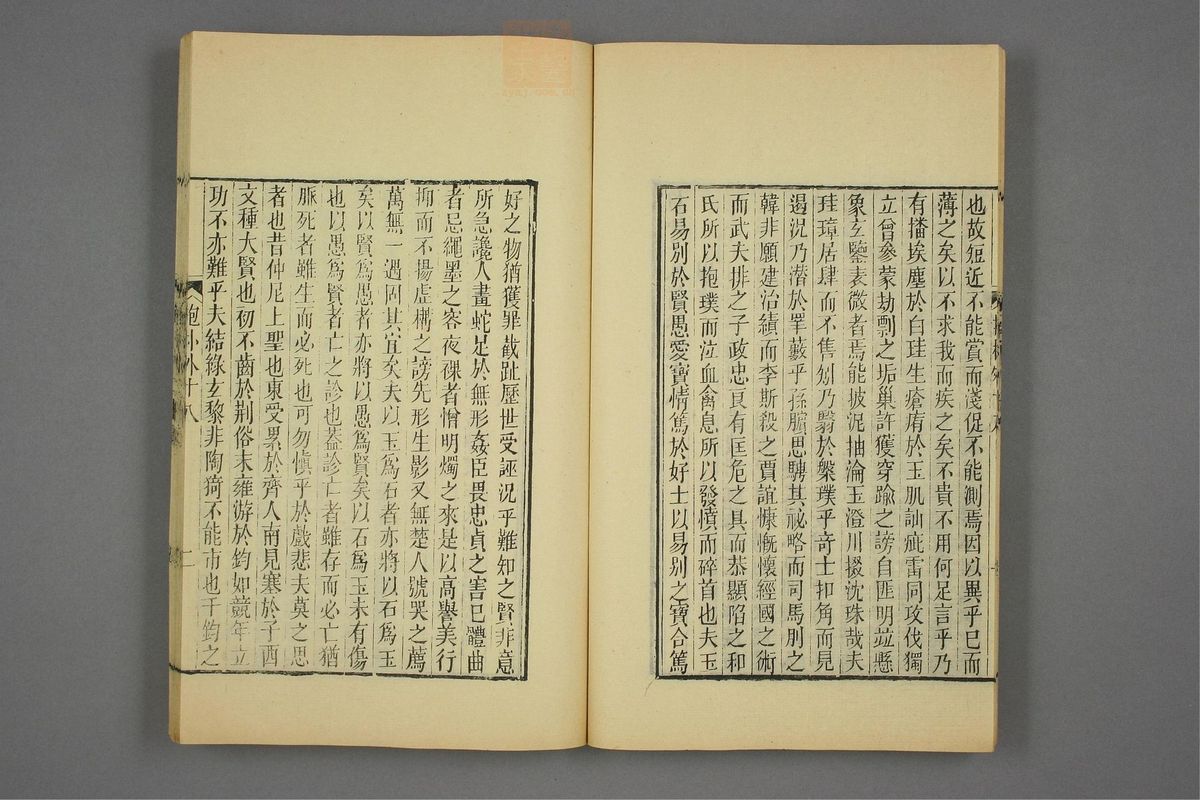 也故短近不能賞而淺促不能測焉因以異乎已而
薄之矣以不求我而疾之矣不貴不用何足言乎乃
有播埃塵於白珪生瘡痏於玉肌訕疵雷同攻伐獨
立曾參蒙劫剽之垢巢許獲穿踰之謗自匪明並懸
象玄鑒表微者焉能披泥抽淪玉澄川掇沈珠哉夫
珪璋居肆而不售矧乃翳於槃璞乎奇士扣角而見
遏況乃潛於罩藪乎孫臏思騁其祕略而司馬刖之
韓非願建治績而李斯殺之賈誼慷慨懷經國之術
而武夫排之子政忠良有匡危之具而恭顯陷之和
氏所以抱璞而泣血禽息所以發憤而碎首也夫玉
石易別於賢愚愛寶情篤於好士以易別之寶合篤
好之物猶獲罪截趾歷世受誣況乎難知之賢非意
所急讒人畫蛇足於無形姦臣畏忠貞之害已體曲
者忌繩墨之容夜裸者憎明燭之來是以高譽美行
抑而不揚虛構之謗先形生影又無楚人號哭之薦
萬無一遇固其宜矣夫以玉為石者亦將以石為玉
矣以賢為愚者亦將以愚為賢矣以石為玉未有傷
也以愚為賢者亡之診也蓋診亡者雖存而必亡猶
脈死者雖生而必死也可勿慎乎於戲悲夫莫之思
者也昔仲尼上聖也東受累於齊人南見塞於子西
文種大賢也初不齒於荆俗末雍游於鈞如競年立
功不亦難乎夫結綠玄黎非陶猗不能市也千鈞之
抱朴外十八
二